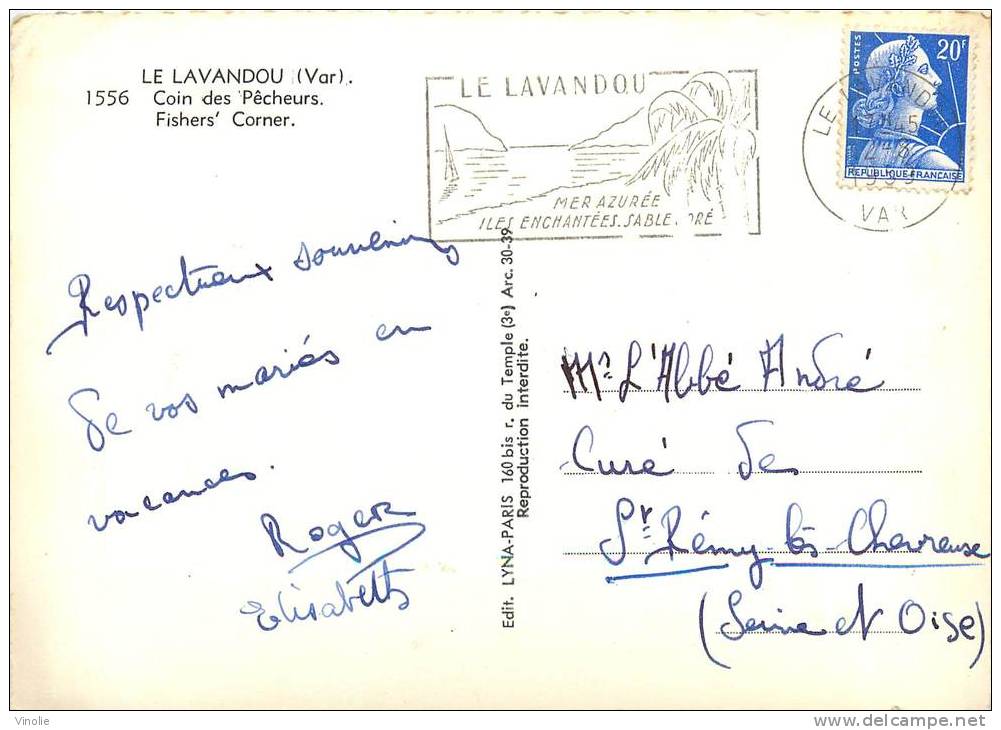 LE LAVANDOU (Var).
1556 Coin des Pêcheurs.
Fishers' Corner.
LE LAVANDOU
MER AZURÉE
ILES ENCHANTÉES. SABLE ORÉ
POSTES
20F
REPUBLIQUE FRANCAISE
17H45
VAR
Respectueux souvenirs
de vos mariés en
vacances.
Roger
Elisabeth
Edit. LYNA-PARIS 160 bis r. du Temple (3e) Arc. 30-39
Reproduction interdite.
Mr. L'Abbé André
Curé de
St Rémy-lès-Chevreuse
(Seine et Oise)
Vinolie
www.delcampe.net